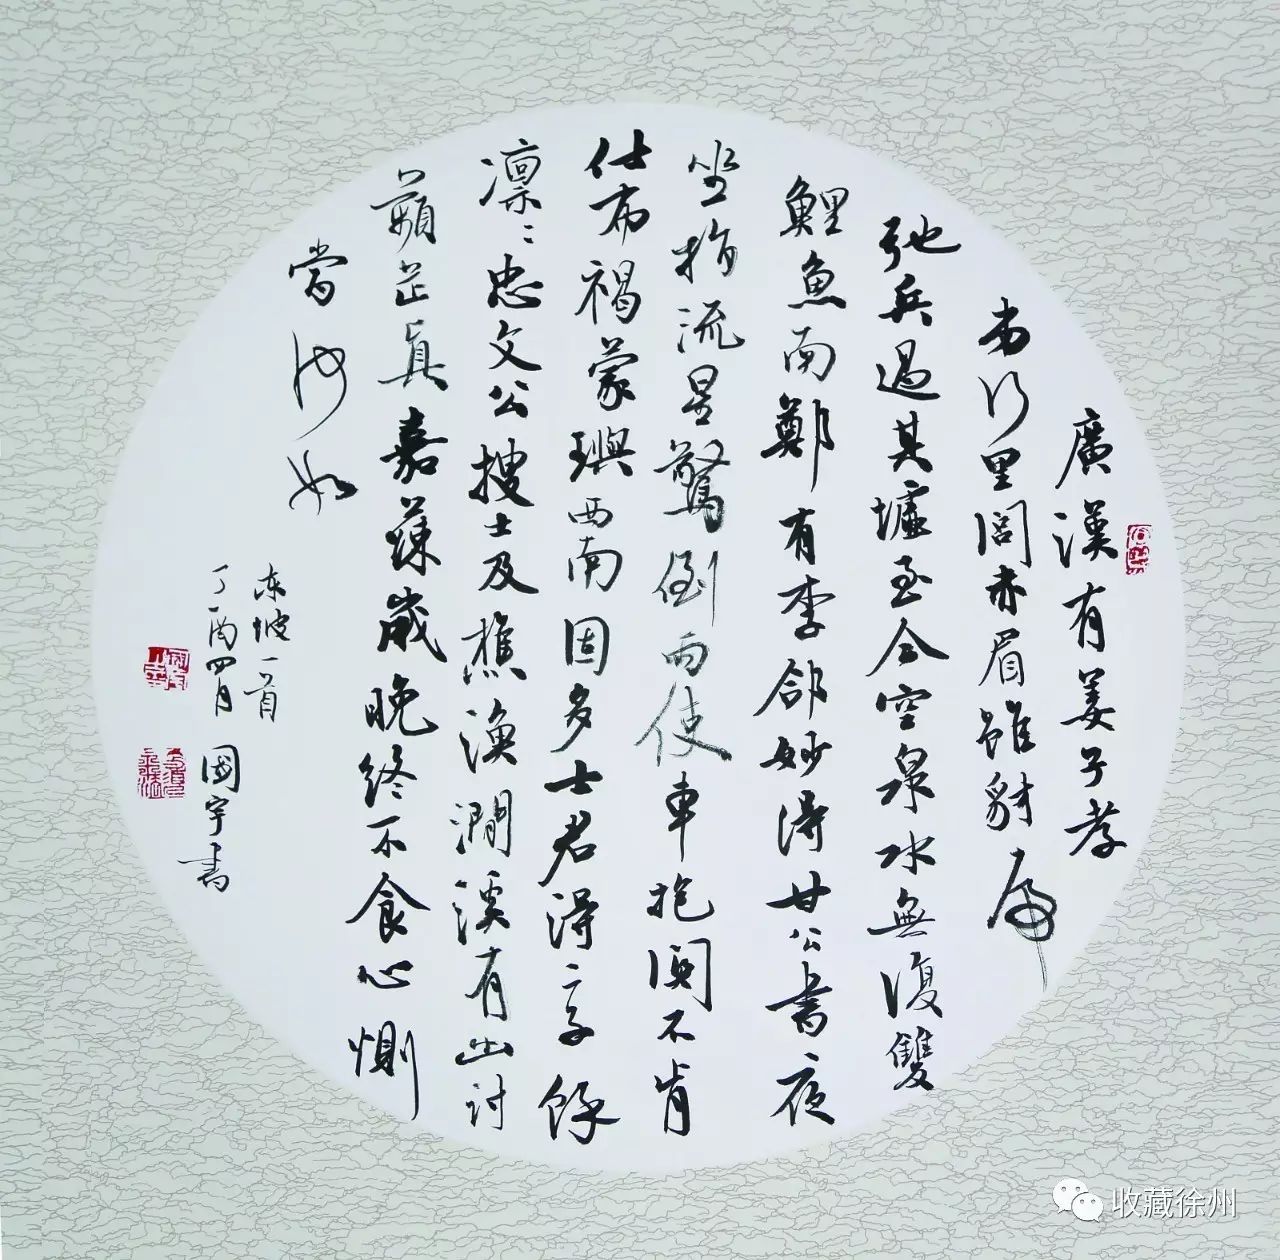 廣漢有姜子孝
弟行里閭赤眉雖豺虎
弛兵過其墟至今空泉水無復雙
鯉魚南鄭有李郃妙得甘公書夜
坐指流星驚倒兩使車抱関不肯
仕布褐蒙璵西南固多士君得二子餘
凛〻忠文公搜士及樵漁澗溪有幽討
蘋芷真嘉蔬歲晚終不食心惻
當何如
东坡一首
丁酉四月 國宇書
收藏徐州